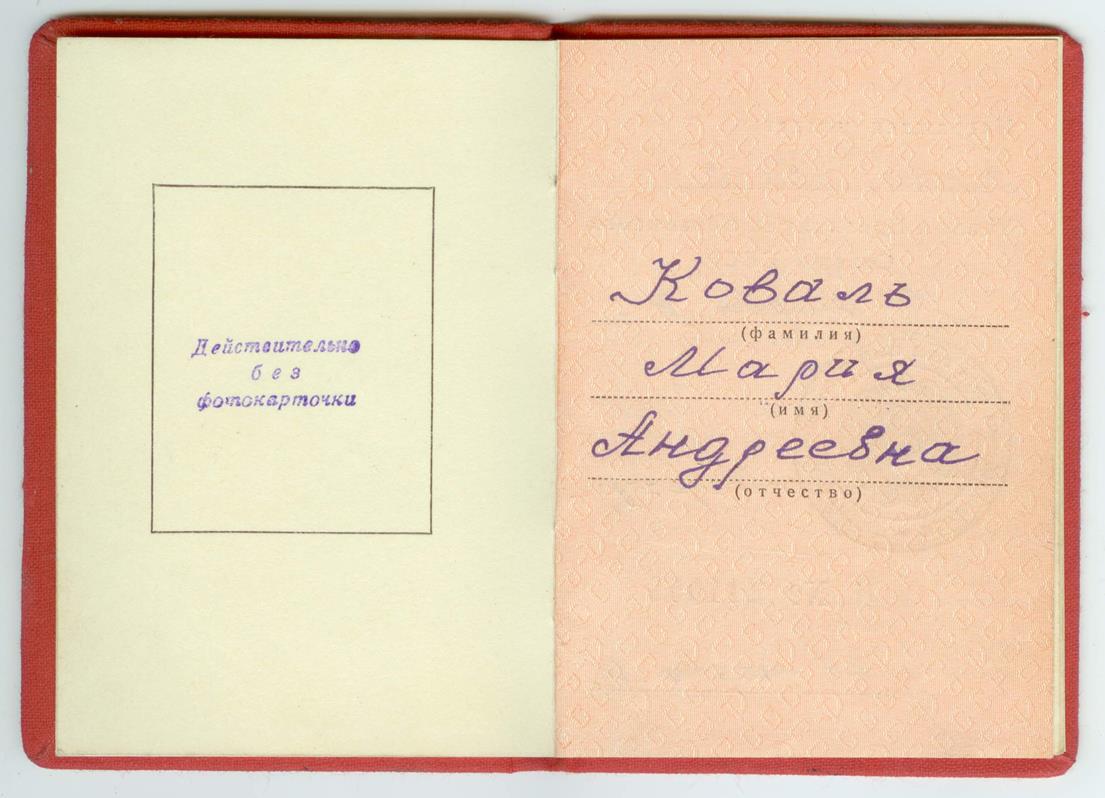 Действительно
без
фотокарточки
Коваль
(фамилия)
Мария
(имя)
Андреевна
(отчество)